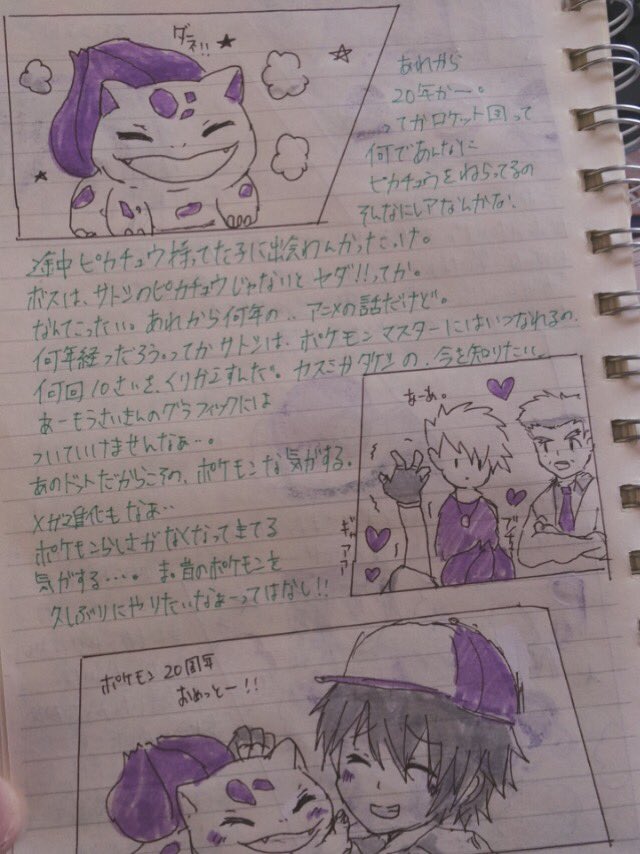 ダネ!!
あれから
20年かー。
ってかロケット団って
何であんなに
ピカチュウをねらってるの
そんなにレアなんかな、
途中ピカチュウ持ってた子に出会わんかったっけ。
ボスは、サトシのピカチュウじゃないとヤダ!!ってか。
なんてこったい。あれから何年の、、アニメの話だけど。
何年経っだろう。ってかサトシは、ポケモンマスターにはいつなれるの、
何回10さいを、くりかえすんだ。カスミかタケシの、今を知りたい
あーもうさいきんのグラフィックには
ついていけませんなぁ…。
あのドットだからこその、ポケモンな気がする、
メガ進化もなぁ…
ポケモンらしさがなくなってきてる
気がする…。ま。昔のポケモンを
久しぶりにやりたいなぁーってはなし!!
あーあ。
ギャアアー
ポケモン20周年
おめっとー!!